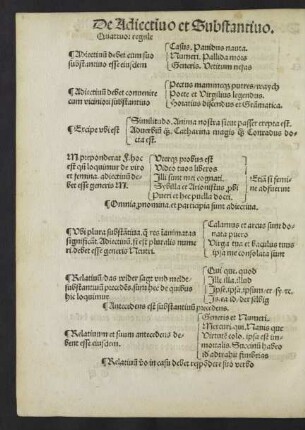 De Adiectiuo et Substantiuo.
Quattuor regule
¶Adiectiuū debet cum suo substantiuo esse eiusdem
Casus. Pauidus nauta.
Numeri. Pallida mors
Generis. Vetitum nefas
¶Adiectiuū debet conuenire cum viciniori substantiuo
Pectus mammeqz patres
Poete et Virgilius legendus.
Notarius discendus et Grāmatica.
¶Excipe vbi est
Similitudo. Anima nostra sicut passer erepta est.
Aduerbiū qz. Catharina magis qz Conradus docta est.
M. preponderat F. hoc est qn̄ loquimur de viro et femina. adiectiuū debet esse generis M.
Vterqz probus est
Video tuos liberos
Illi sunt mei cognati.
Sybilla et Ariouistus vbi
Pueri et hec puella docti.
Etiā si femine adfuerint
¶Omnia pronomina et participia sunt adiectiua.
¶Vbi plura substātiua, q̄ res inanimatas significāt. Adiectiuū, si est pluralis numeri. debet esse generis Neutri.
Calamus et arcus sunt donata puero
Virga tua et baculus tuus ipsa me consolata sunt
¶Relatiuū das wider sagt vnd meldt substantiuū precedēs. sunt hec de quibus hic loquimur.
Qui. que. quod
Ille illa. illud
Ipse. ipsa. ipsum
Is. ea id. der selbig
¶Antecedens est substantiuū precedens.
¶Relatiuum et suum antecedens debent esse eiusdem.
Generis et Numeri.
Mercuri. qui. Manus que
Virtutē colo. ipsa est immortalis.
¶Relatiuū vō in casu debet respōdere suo verbo